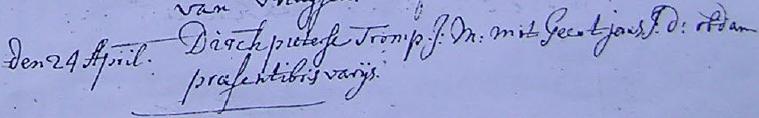 van
den 24 April. Dirck pieterse Tromp. J: M: mit Geert jans J: d: obdam
præsentibus varijs.